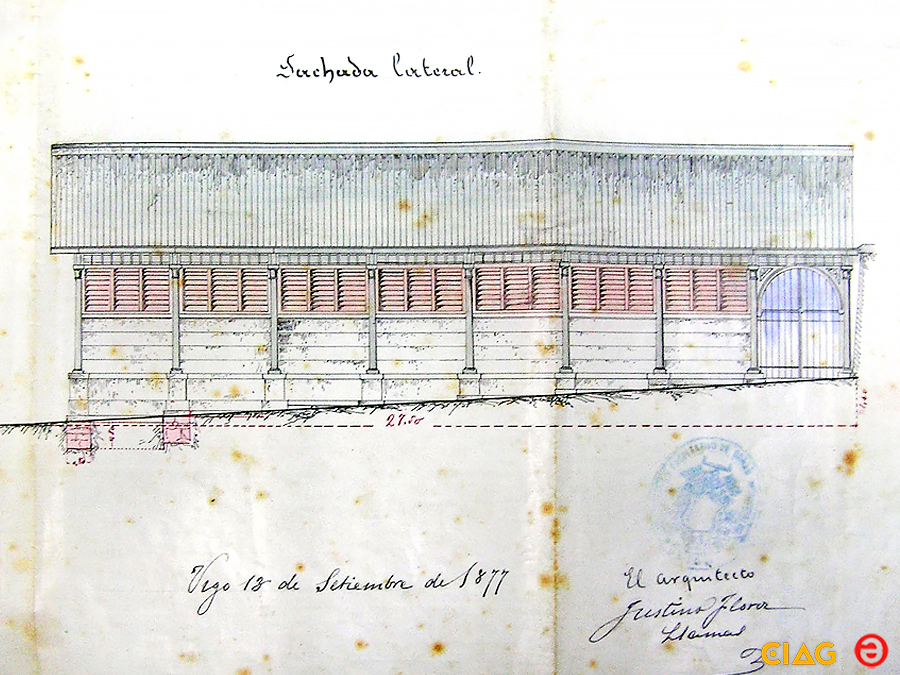 Fachada lateral.
27.50
Vigo 13 de Setiembre de 1877
El arquitecto
Justino Florez
Llamas
CIAG